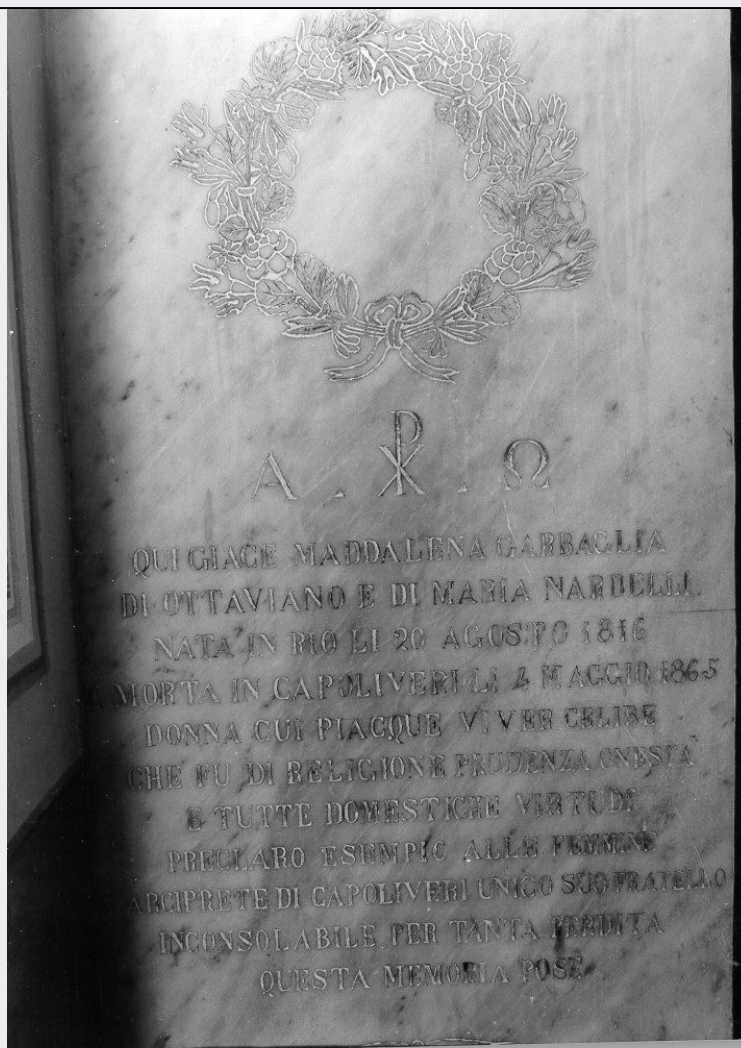 A . ☧ . Ω
QUI GIACE MADDALENA GARBAGLIA
DI OTTAVIANO E DI MARIA NARDELLI
NATA IN RIO LI 20 AGOSTO 1816
MORTA IN CAPOLIVERI LI 4 MAGGIO 1865
DONNA CUI PIACQUE VIVER CELIBE
CHE FU DI RELIGIONE PRUDENZA ONESTÀ
E TUTTE DOMESTICHE VIRTUDI
PRECLARO ESEMPIO ALLE FEMMINE
ARCIPRETE DI CAPOLIVERI UNICO SUO FRATELLO
INCONSOLABILE PER TANTA PERDITA
QUESTA MEMORIA POSE